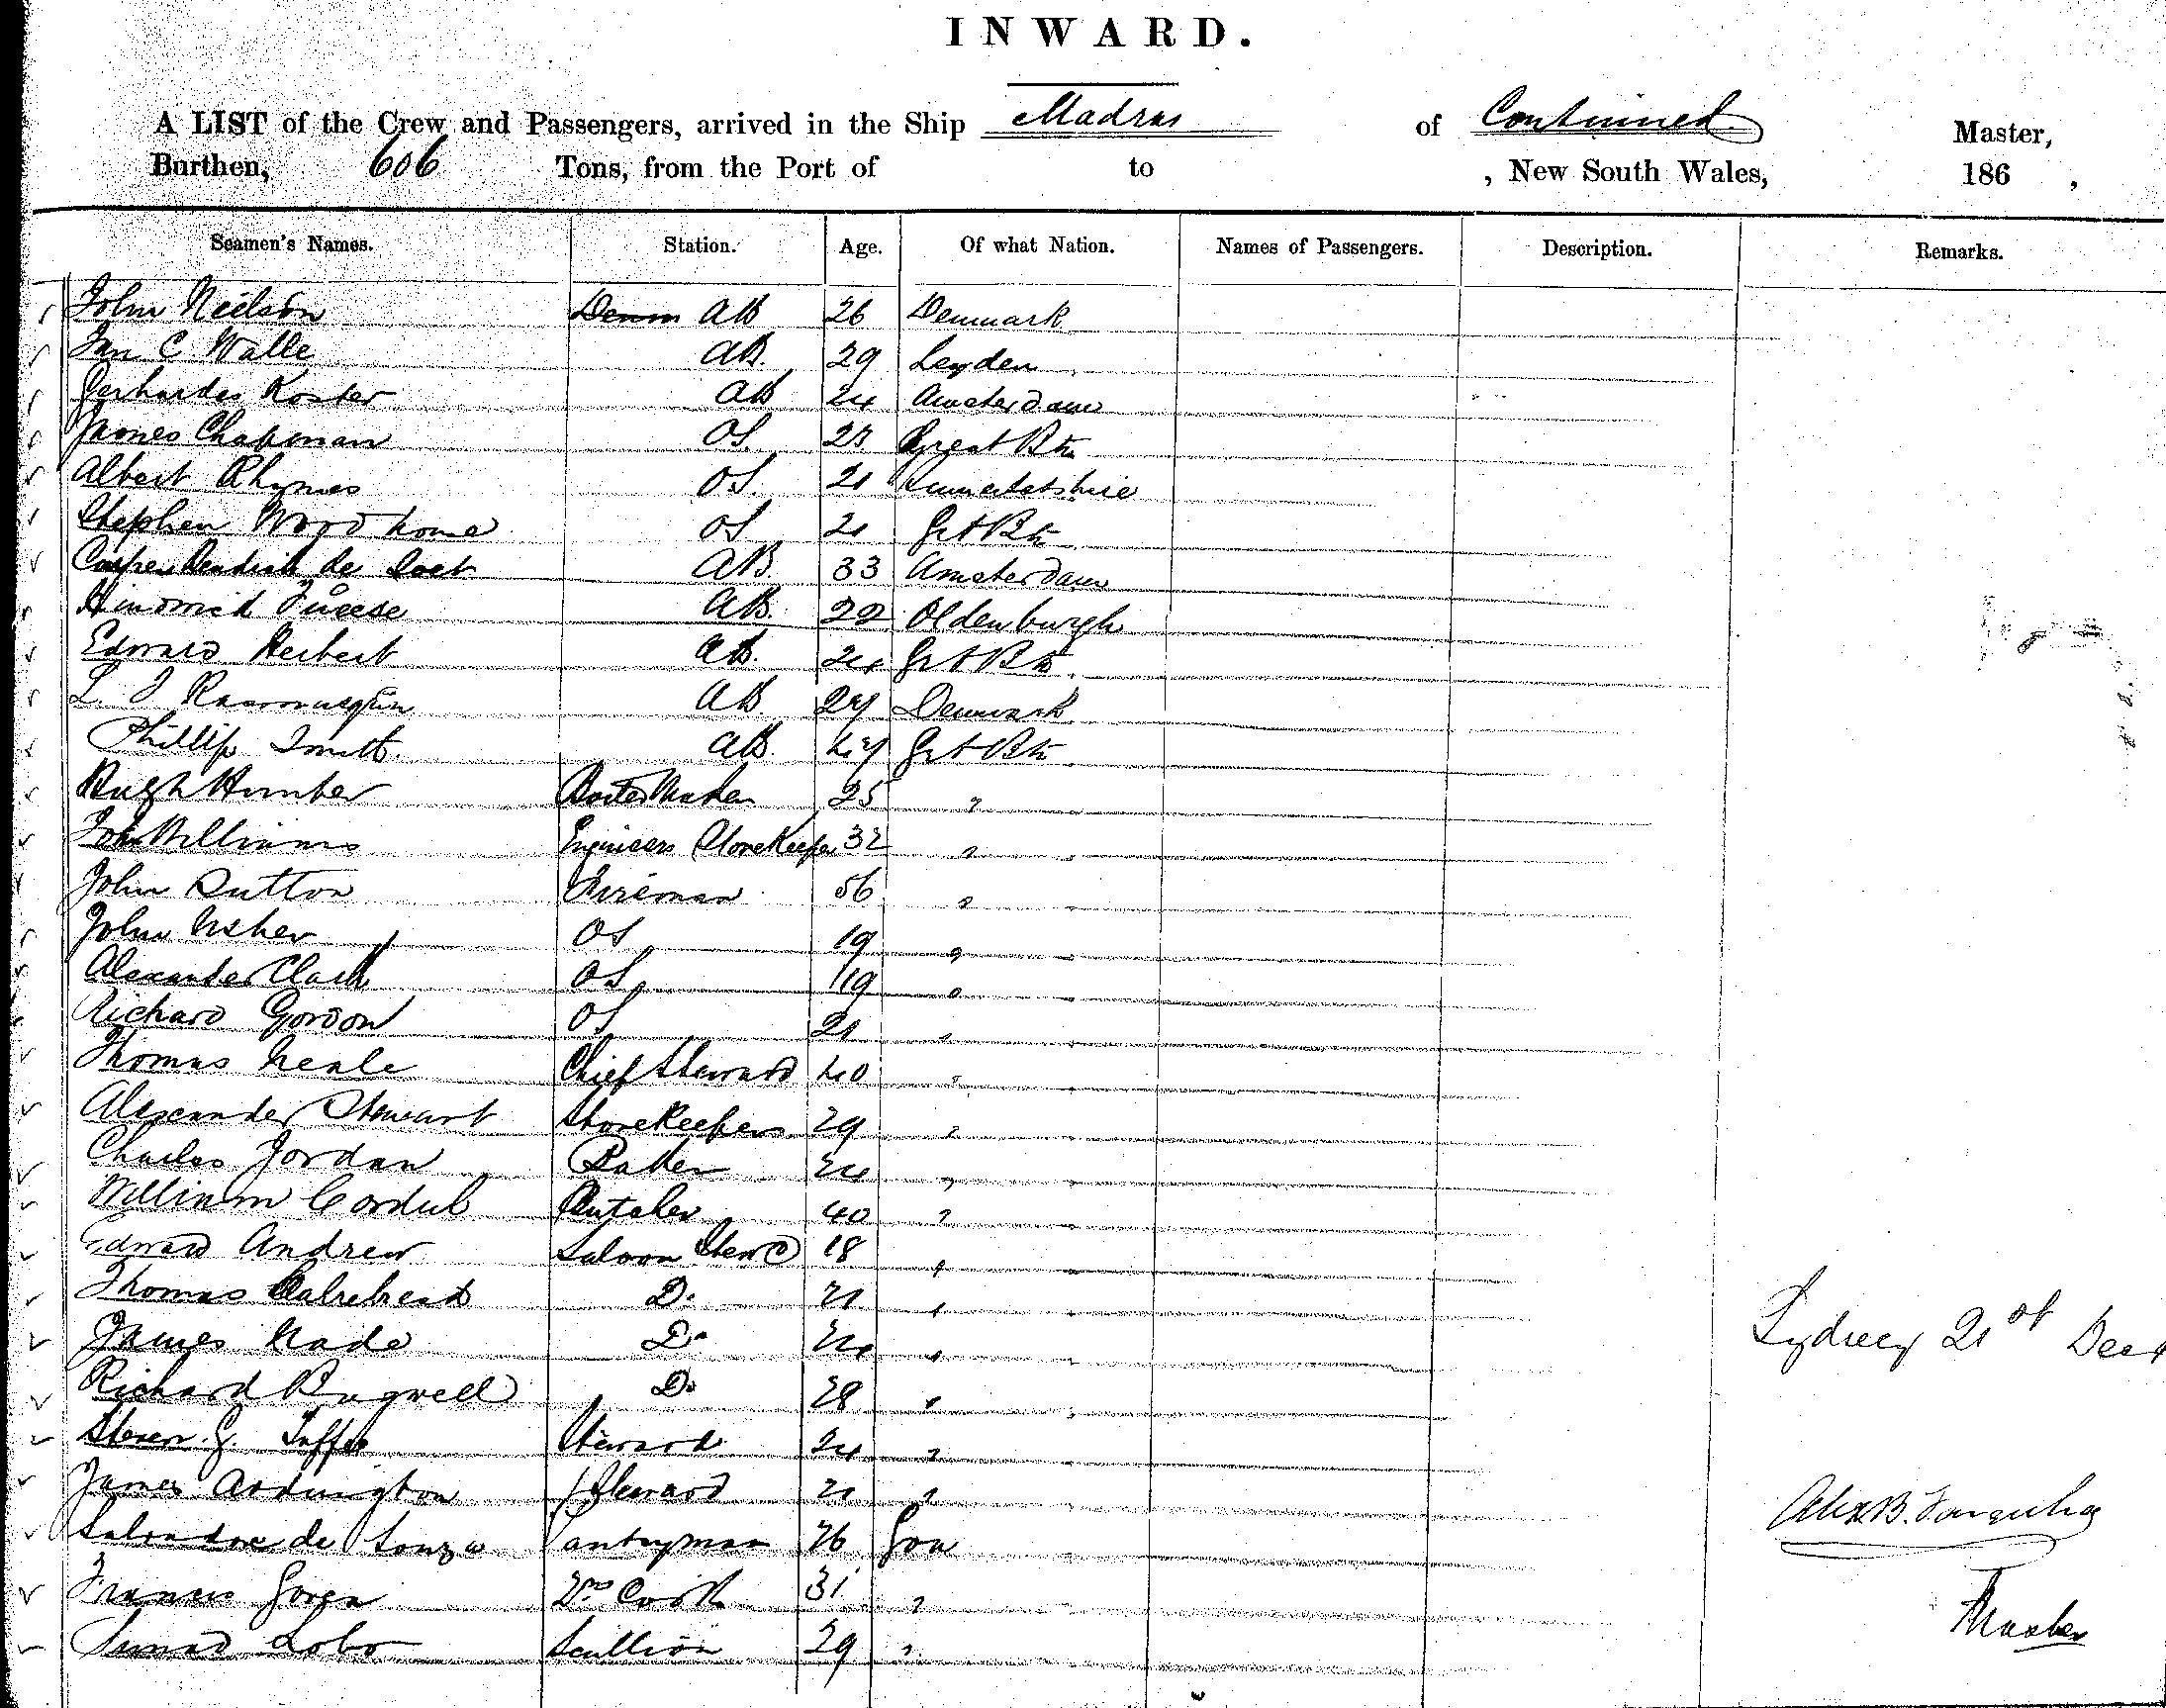 INWARD.
A LIST of the Crew and Passengers, arrived in the Ship Madras of Continued Master,
Burthen, 606 Tons, from the Port of to , New South Wales, 186 ,
Seamen's Names. Station. Age. Of what Nation. Names of Passengers. Description. Remarks.
John Neilson Denm AB 26 Denmark
Jan C Walle AB. 29 Leyden
Gerhardes Koster AB 24 Amsterdam
James Chapman OS. Great Btn
Albert Rhymes OS. 21
Stephen Woodhome OS 21 Grt Btn
de AB. 33 Amsterdam
AB. 22 Oldenburgh
Edward Herbert AB. 24 Grt Btn
L. AB. 27 Denmark
Phillip Smith. AB. 47 Grt Btn
Hugh Hunter 25 "
John Williams Engineers Storekeeper 32 "
John Sutton Fireman 56 "
John Usher OS 19 "
Alexander Clark OS 19 "
Richard Gordon OS 21 "
Thomas Neale Chief Steward 40 "
Alexander Stewart Storekeeper 29 "
Charles Jordan Baker 24 "
William Butcher 40 "
Edward Andrew Saloon Stewd 18 "
Thomas Do 21 "
James Wade Do 24 "
Richard Bugwell Do 28 "
Steward 24 "
James Addington Steward 21 "
Salvadore de Souza Pantryman 26 Goa
Francis 2nd Cook 31 "
Lobo Scullion 29 "
Sydney 21st Decr
Alex B. Farquhar
Master